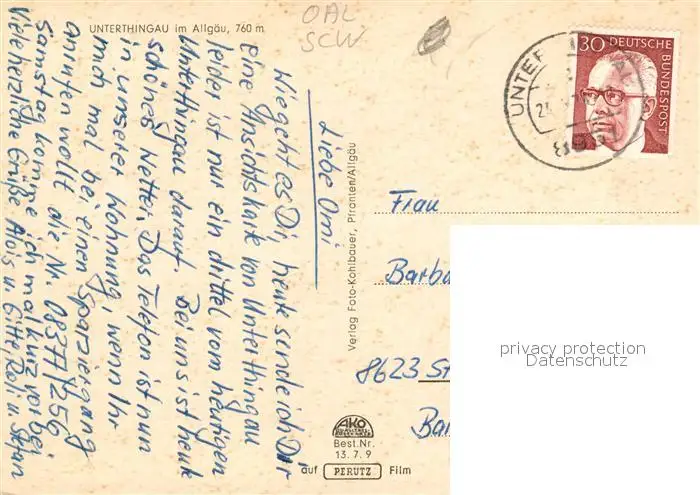 UNTERTHINGAU im Allgäu, 760 m
OAL
SCW
Liebe Omi
Wie geht es Dir, heute sende ich Dir
eine Ansichtskarte von Unterthingau
leider ist nur ein drittel vom heutigen
Unterthingau darauf. Bei uns ist heute
schönes Wetter. Das Telefon ist nun
in unserer Wohnung, wenn Ihr
mich mal bei einen Sparziergang
anrufen wollt die Nr. 08377/256
Samstag komme ich mal kurz vorbei
Viele herzliche Grüße Alois u. Gitte,
Verlag Foto-Kohlbauer, Pfronten/Allgäu
30 DEUTSCHE
BUNDESPOST
UNTER
Frau
Barba
8623 St
Ba
privacy protection
Datenschutz
AKO
Best.Nr.
13.7.9
auf PERUTZ Film